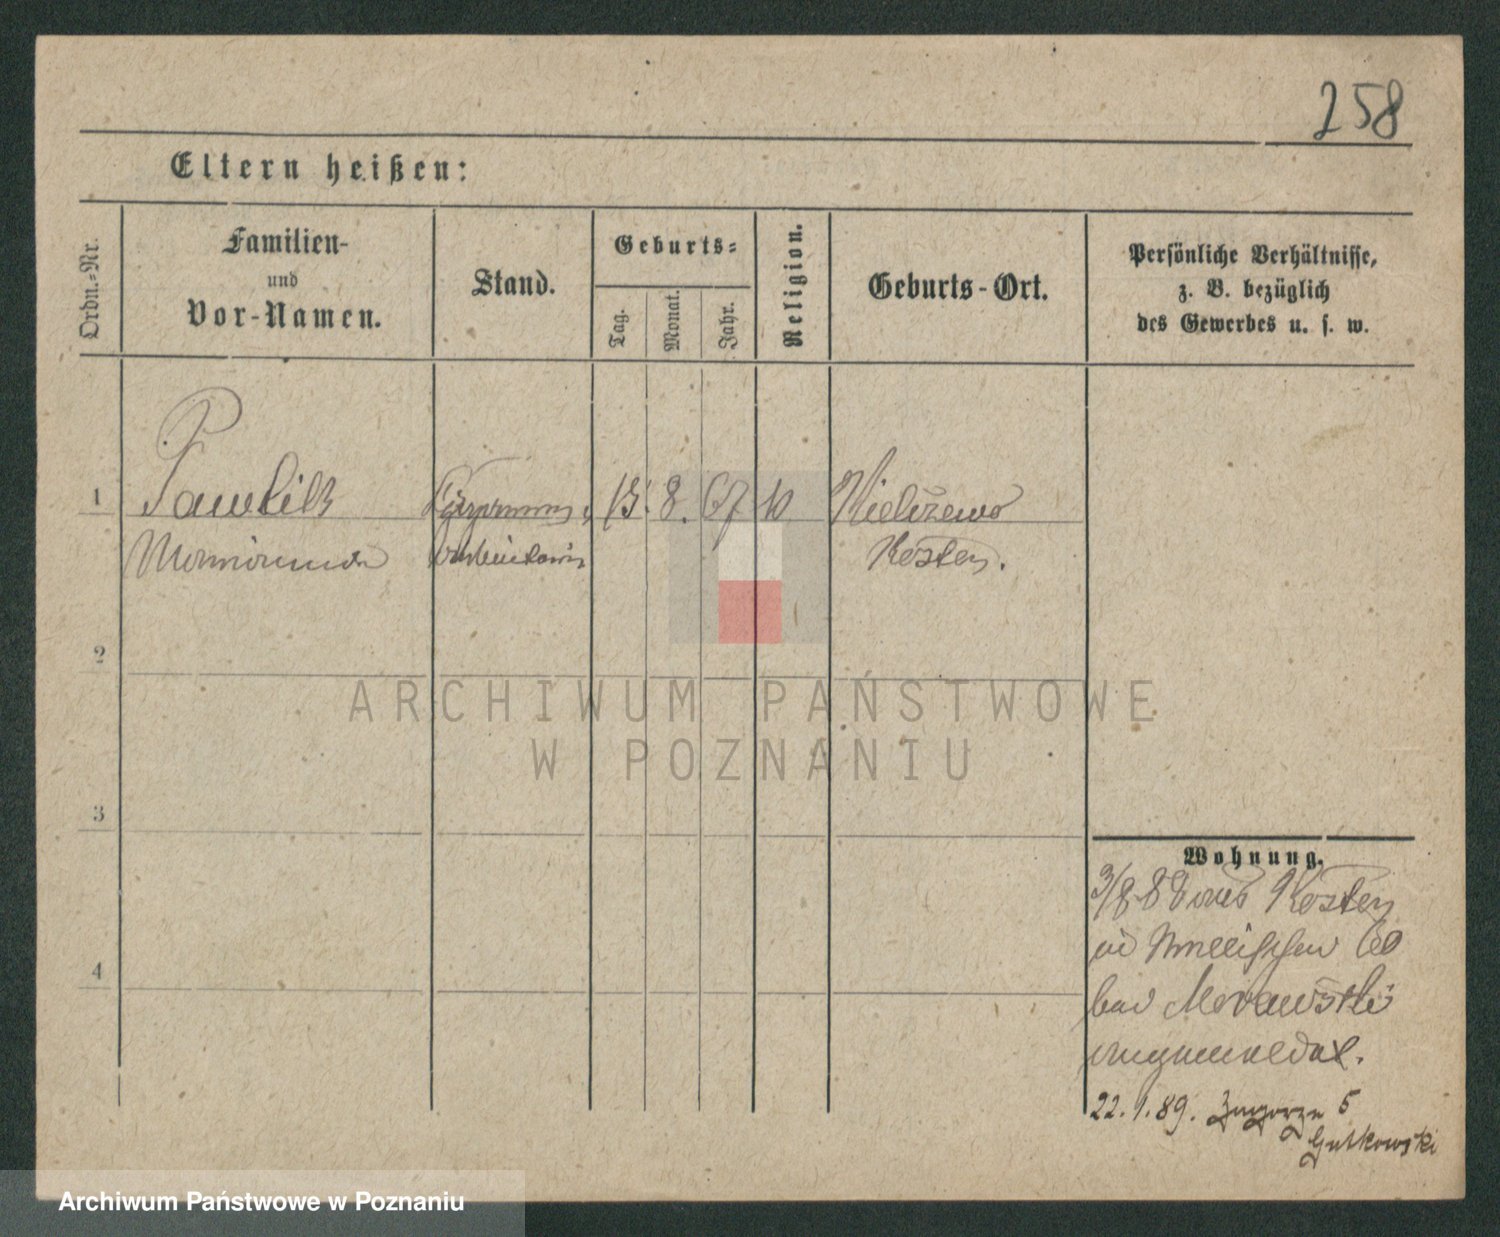 258
Eltern heißen:
Ordn.-Nr.
Familien-
und
Vor-Namen.
Stand.
Geburts-
Tag.
Monat.
Jahr.
Religion.
Geburts-Ort.
Persönliche Verhältnisse,
z. B. bezüglich
des Gewerbes u. s. w.
1
Pawlik
15. 8. 67
Kielczewo
Marianna
Arbeiterin
Kosten.
2
ARCHIWUM PAŃSTWOWE
W POZNANIU
3
Wohnung.
3/8 88 aus Kosten
4
bei Morawski
angemeldet.
22. 1. 89. Zagorze 5
Gutkowski
Archiwum Państwowe w Poznaniu